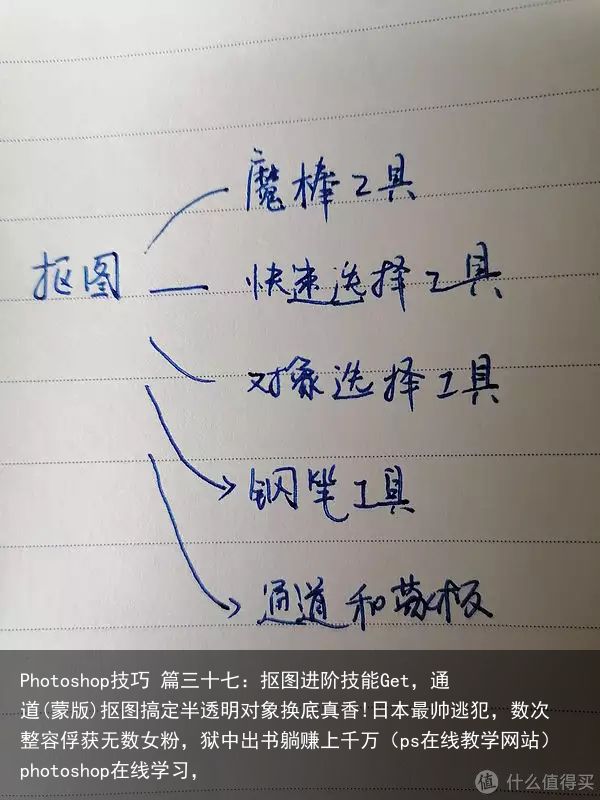 魔棒工具
抠图
快速选择工具
对象选择工具
钢笔工具
通道和蒙板
Photoshop技巧 篇三十七：抠图进阶技能Get，通
道(蒙版)抠图搞定半透明对象换底真香!日本最帅逃犯，数次
整容俘获无数女粉，狱中出书躺赚上千万（ps在线教学网站）
photoshop在线学习，
值 什么值得买